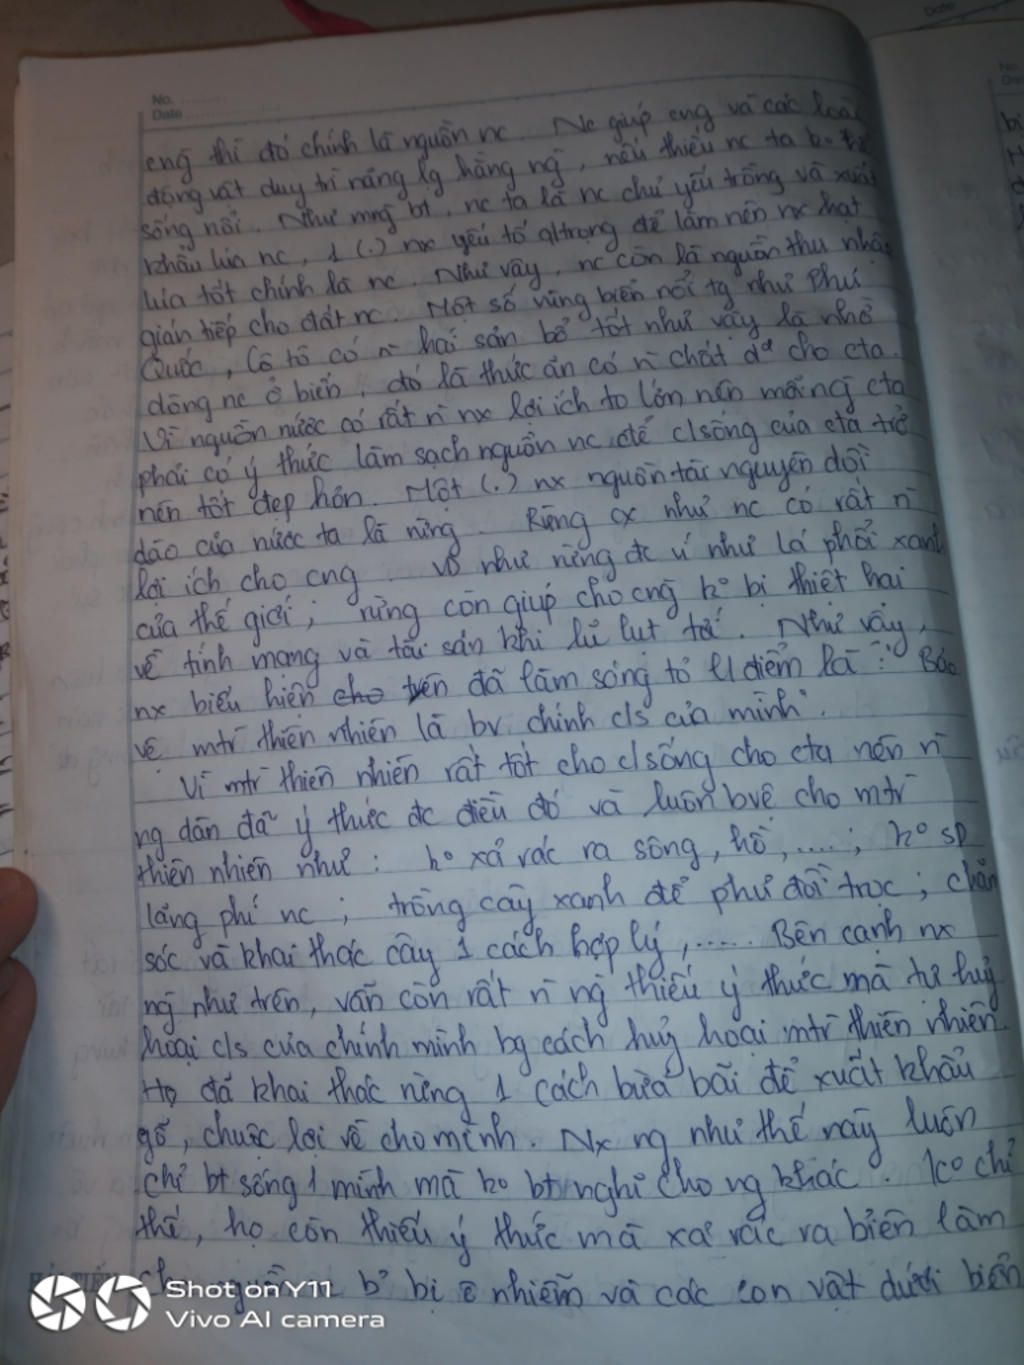 No. ........
Date ..................
cng thì đó chính là nguồn nc. Nc giúp cng và các loài
động vật duy trì năng lg hằng ng, nếu thiếu nc ta ko thể
sống nổi. Như mng bt, nc ta là nc chủ yếu trồng và xuất
khẩu lúa nc, 1 (.) nx yếu tố qtrọng để làm nên nx hạt
lúa tốt chính là nc. Như vậy, nc còn là nguồn thu nhập
gián tiếp cho đất nc. Một số vùng biển nổi tg như Phú
Quốc, Cô tô có n` hải sản bổ tốt như vậy là nhờ
dòng nc ở biển, đó là thức ăn có n` chất d2 cho cta.
Vì nguồn nước có rất n` nx lợi ích to lớn nên mỗi ng cta
phải có ý thức làm sạch nguồn nc để c/sống của cta trở
nên tốt đẹp hơn. Một (.) nx nguồn tài nguyên dồi
dào của nước ta là rừng. Rừng cx như nc có rất n`
lợi ích cho cng. Vd như rừng đc ví như lá phổi xanh
của thế giới; rừng còn giúp cho cng ko bị thiệt hại
về tính mạng và tài sản khi lũ lụt tới. Như vậy,
nx biểu hiện cho trên đã làm sáng tỏ u/điểm là : "Bảo
vệ mtr thiên nhiên là bv chính c/s của mình".
Vì mtr thiên nhiên rất tốt cho c/sống cho cta nên n`
ng dân đã ý thức đc điều đó và luôn bvệ cho mtr
thiên nhiên như : ko xả rác ra sông, hồ, .... ; ko sp
lãng phí nc ; trồng cây xanh để phủ đồi trọc ; chăm
sóc và khai thác cây 1 cách hợp lý, ..... Bên cạnh nx
ng như trên, vẫn còn rất n` ng thiếu ý thức mà tự huỷ
hoại c/s của chính mình bg cách huỷ hoại mtr thiên nhiên.
Họ đã khai thác rừng 1 cách bừa bãi để xuất khẩu
gỗ, chuộc lợi về cho mình. Nx ng như thế này luôn
chỉ bt sống 1 mình mà ko bt nghĩ cho ng khác. Ko chỉ
thế, họ còn thiếu ý thức mà xả rác ra biển làm
bị ô nhiễm và các con vật dưới biển
Shot on Y11
Vivo AI camera